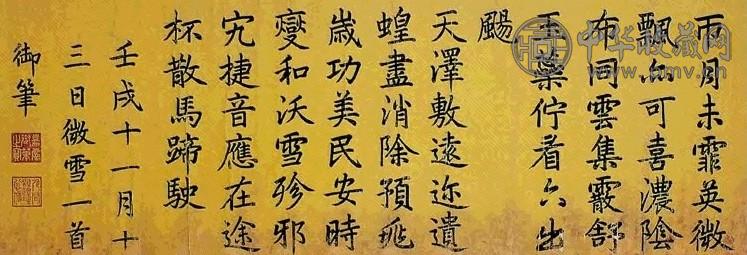 兩月未霏英微
飄亦可喜濃陰
布同雲集霰舒
玉葉佇看六出
颺
天澤敷遠迩遺
蝗盡消除預兆
歲功美民安時
燮和沃雪殄邪
宄捷音應在途
杯散馬蹄駛
壬戌十一月十
三日微雪一首
御筆
中华收藏网